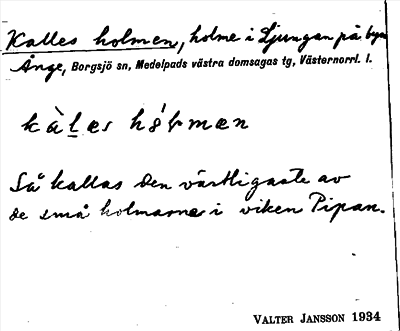 Kalles holmen, holme i Ljungan på byn
Ånge, Borgsjö sn, Medelpads västra domsagas tg, Västernorrl. l.
kàḷes hólmen
Så kallas den västligaste av
de små holmarne i viken Pipan.
VALTER JANSSON 1934